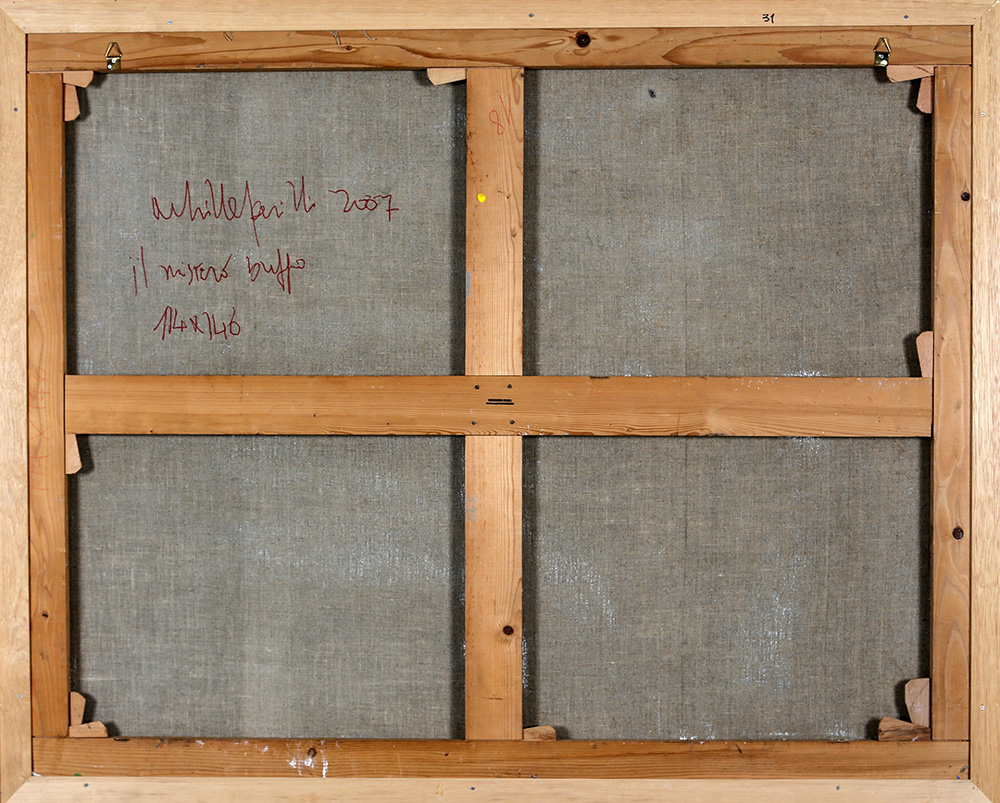 31
81
achilleperilli 2007
il mistero buffo
114x146